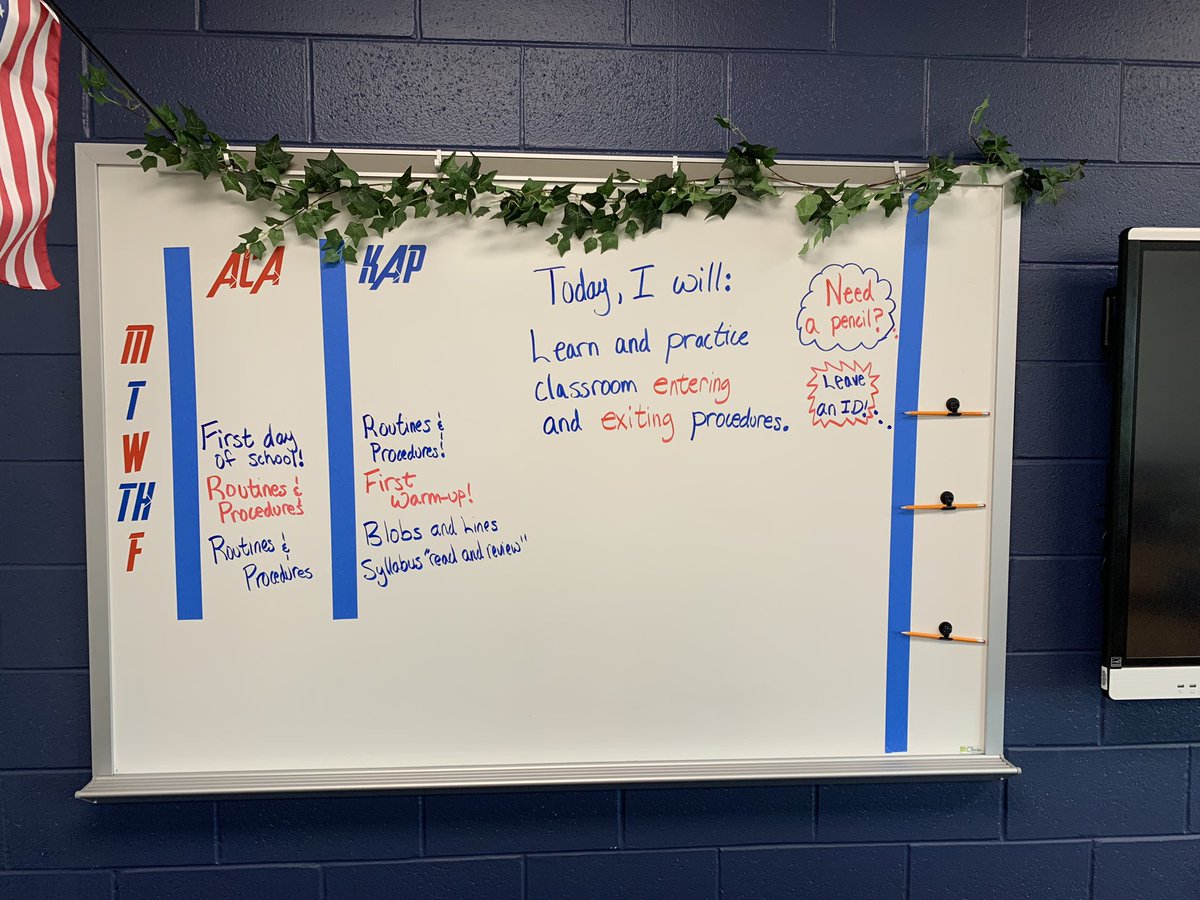 ALA
KAP
M
T
W
TH
F
First day
of school!
Routines &
Procedures
Routines &
Procedures
Routines &
Procedures!
First
warm-up!
Blobs and Lines
Syllabus "read and review"
Today, I will:
Learn and practice
classroom entering
and exiting procedures.
Need
a pencil?
Leave
an ID!